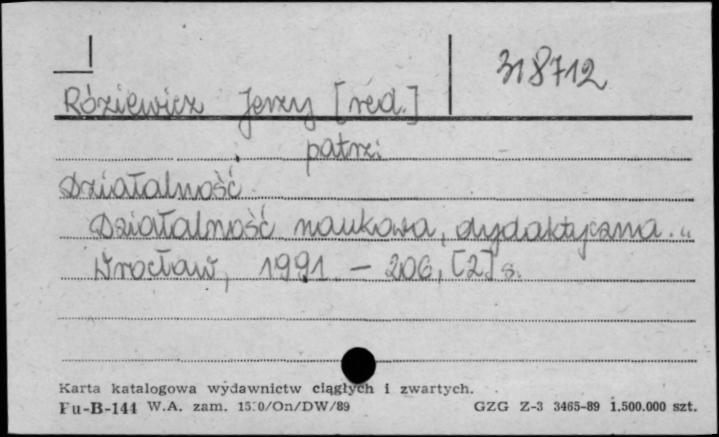 318712
Róziewicz Jerzy [red.]
patrz:
Działalność
Działalność naukowa, dydaktyczna..
Wrocław, 1991. - 206, [2] s.
Karta katalogowa wydawnictw ciągłych i zwartych.
Fu-B-144 W.A. zam. 1530/On/DW/89 GZG Z-3 3465-89 1.500.000 szt.